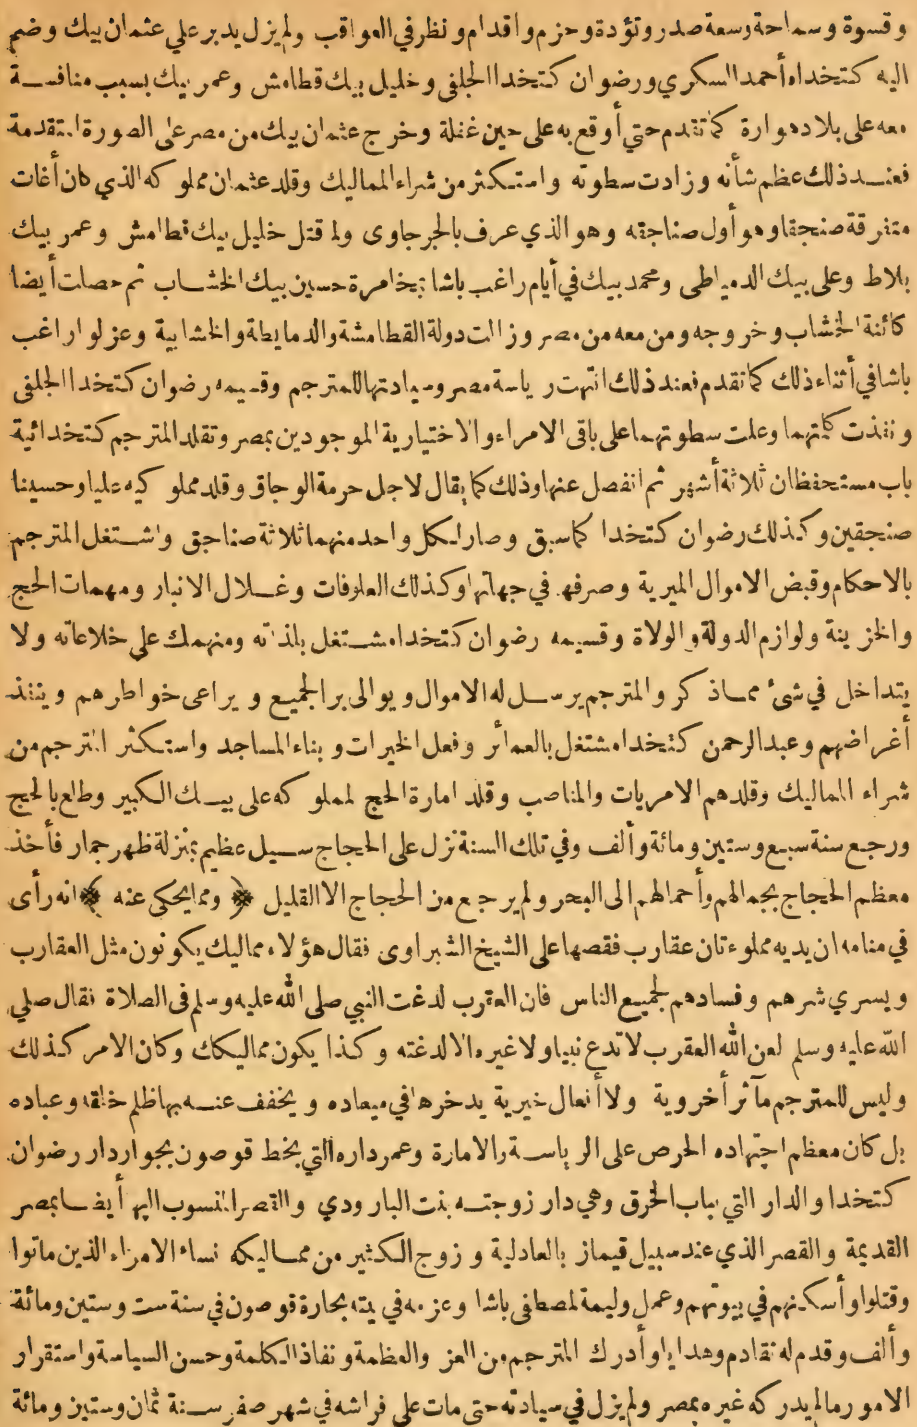 وقسوة وسماحة وسعة صدر وتؤدة وحزم واقدام ونظر في العواقب ولم يزل يدبر علي عثمان بيك وضم
اليه كتخداه أحمد السكري ورضوان كتخدا الجلفي وخليل بيك قطامش وعمر بيك بسبب منافسة
معه على بلاد هوارة كما تقدم حتي أوقع به على حين غفلة وخرج عثمان بيك من مصر على الصورة المتقدمة
فعند ذلك عظم شأنه وزادت سطوته واستكثر من شراء المماليك وقلد عثمان مملوكه الذي كان أغات
متفرقة صنجقا وهو أول صناجقه وهو الذي عرف بالجرجاوى ولما قتل خليل بيك قطامش وعمر بيك
بلاط وعلى بيك الدمياطى ومحمد بيك في أيام راغب باشا بمخامرة حسين بيك الخشاب ثم حصلت أيضا
كائنة الخشاب وخروجه ومن معه من مصر وزالت دولة القطامشة والدمايطة والخشابية وعزلوا راغب
باشا في أثناء ذلك كما تقدم فعند ذلك انتهت رياسة مصر وسيادتها للمترجم وقسيمه رضوان كتخدا الجلفى
ونفذت كلمتهما وعلت سطوتهما على باقى الامراء والاختيارية الموجودين بمصر وتقلد المترجم كتخدائية
باب مستحفظان ثلاثة أشهر ثم انفصل عنها وذلك كما يقال لاجل حرمة الوجاق وقلد مملوكيه عليا وحسينا
صنجقين وكذلك رضوان كتخدا كما سبق وصار لكل واحد منهما ثلاثة صناجق واشتغل المترجم
بالاحكام وقبض الاموال الميرية وصرفها في جهاتها وكذلك العلوفات وغلال الانبار ومهمات الحج
والخزينة ولوازم الدولة والولاة وقسيمه رضوان كتخدا مشتغل بلذاته ومنهمك على خلاعاته ولا
يتداخل في شئ مماذكر والمترجم يرسل له الاموال ويوالى بر الجميع ويراعى خواطرهم وينفذ
أغراضهم وعبد الرحمن كتخدا مشتغل بالعمائر وفعل الخيرات وبناء المساجد واستكثر المترجم من
شراء المماليك وقلدهم الامريات والمناصب وقلد امارة الحج لمملوكه على بيك الكبير وطلع بالحج
ورجع سنة سبع وستين ومائة وألف وفي تلك السنة نزل على الحجاج سيل عظيم بمنزلة ظهر حمار فأخذ
معظم الحجاج بجمالهم وأحمالهم الى البحر ولم يرجع من الحجاج الا القليل ﴿ ومما يحكى عنه ﴾ انه رأى
في منامه ان يديه مملوءتان عقارب فقصها على الشيخ الشبراوى فقال هؤلاء مماليك يكونون مثل العقارب
ويسري شرهم وفسادهم لجميع الناس فان العقرب لدغت النبي صلى الله عليه وسلم فى الصلاة فقال صلي
الله عليه وسلم لعن الله العقرب لا تدع نبيا ولا غيره الا لدغته وكذا يكون مماليكك وكان الامر كذلك
وليس للمترجم مآثر أخروية ولا أفعال خيرية يدخرها في ميعاده ويخفف عنه بها ظلم خلقه وعباده
بل كان معظم اجتهاده الحرص على الرياسة والامارة وعمر داره التي بخط قوصون بجوار دار رضوان
كتخدا والدار التي بباب الخرق وهي دار زوجته بنت البارودي والقصر المنسوب اليها أيضا بمصر
القديمة والقصر الذي عند سبيل قيماز بالعادلية وزوج الكثير من مماليكه نساء الامراء الذين ماتوا
وقتلوا وأسكنهم في بيوتهم وعمل وليمة لمصطفى باشا وعزمه في بيته بحارة قوصون في سنة ست وستين ومائة
وألف وقدم له تقادم وهدايا وأدرك المترجم من العز والعظمة ونفاذ الكلمة وحسن السياسة واستقرار
الامور ما لم يدركه غيره بمصر ولم يزل في سيادته حتى مات على فراشه في شهر صفر سنة ثمان وستين ومائة